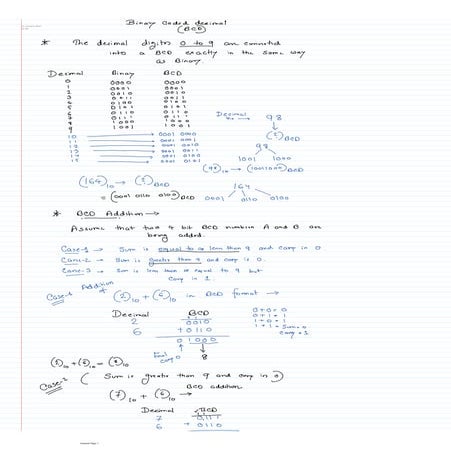 Binary Coded decimal
(BCD)
* The decimal digits 0 to 9 are converted
into a BCD exactly in the same way
as Binary.
Decimal Binary BCD
0 0000 0000
1 0001 0001
2 0010 0010
3 0011 0011
4 0100 0100
5 0101 0101
6 0110 0110
7 0111 0111
8 1000 1000
9 1001 1001
10 → 0001 0000
11 → 0001 0001
12 → 0001 0010
13 → 0001 0011
14 → 0001 0100
15 → 0001 0101
Decimal No. → 98
(?)BCD
98
1001 1000
(98)10 → (10011000)BCD
(164)10 → (?)BCD
= (0001 0110 0100)BCD
164
0001 0110 0100
* BCD Addition →
Assume that two 4 bit BCD numbers A and B are
being added.
Case-1 → Sum is equal to or less than 9 and carry is 0
Case-2 → Sum is greater than 9 and carry is 0.
Case-3 → Sum is less than or equal to 9 but
carry is 1.
Case-1 Addition of (2)10 + (6)10 in BCD format →
Decimal BCD
2 0010
6 +0110
0 1000
carry 0 8
0+0=0
0+1=1
1+0=1
1+1= Sum=0
Carry=1
(2)10 + (6)10 = (8)10
Case-2 (Sum is greater than 9 and carry is 0)
(7)10 + (6)10 → BCD addition.
Decimal BCD
7 0111
6 +0110